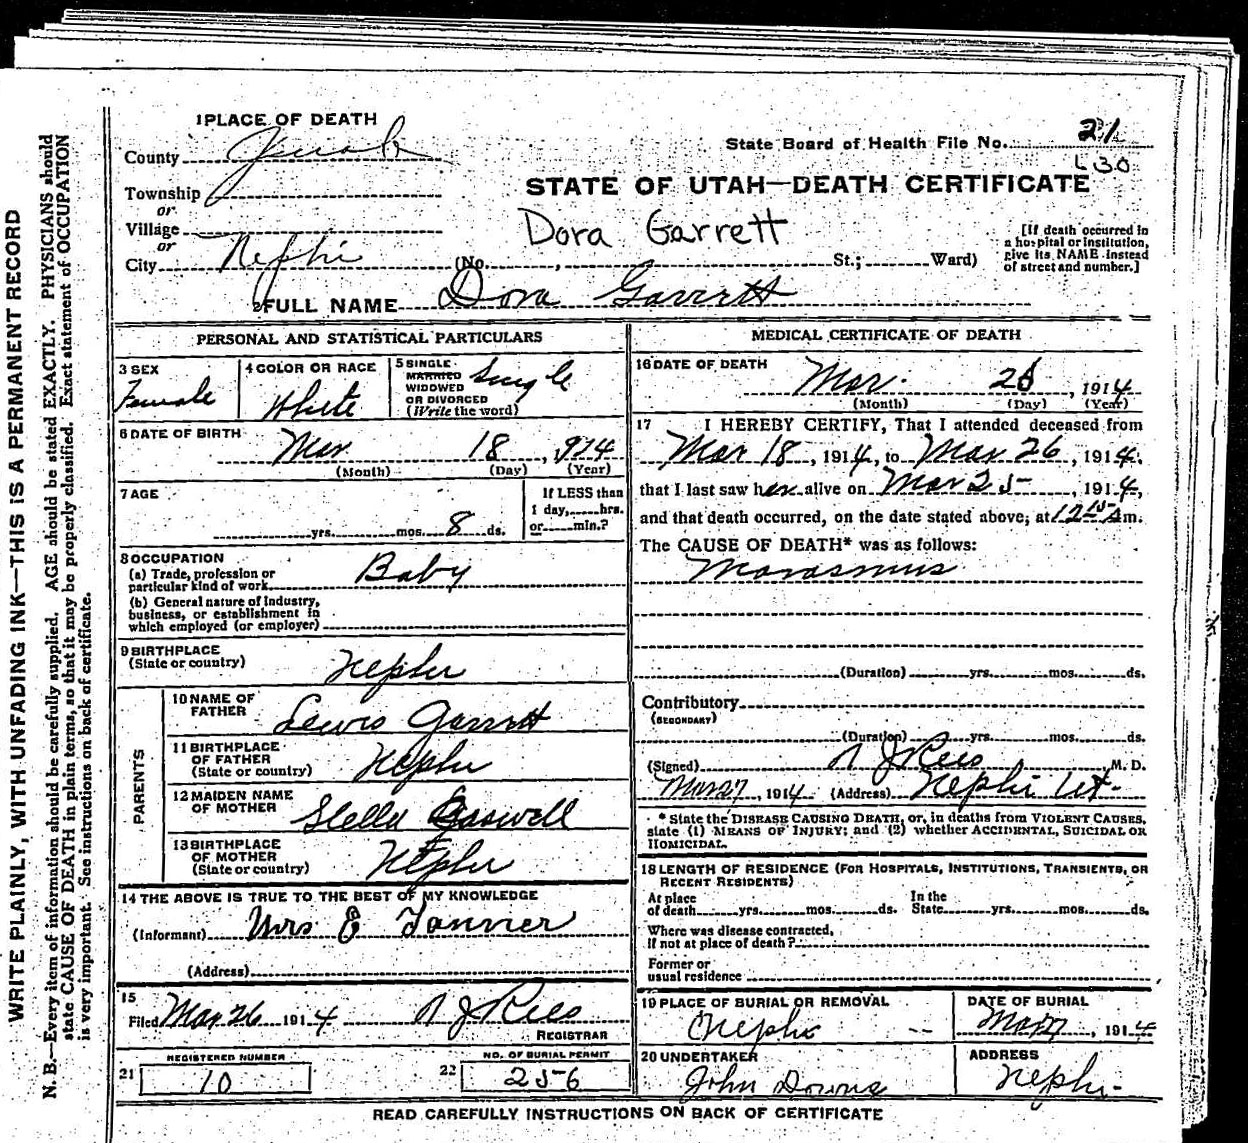 1 PLACE OF DEATH
County Juab
State Board of Health File No. 21
L30
Township
or
Village
or
City Nephi
STATE OF UTAH—DEATH CERTIFICATE
Dora Garrett
(No. , St.; Ward)
[If death occurred in
a hospital or institution,
give its NAME instead
of street and number.]
2 FULL NAME Dora Garrett
PERSONAL AND STATISTICAL PARTICULARS
3 SEX
Female
4 COLOR OR RACE
White
5 SINGLE
MARRIED
WIDOWED
OR DIVORCED
(Write the word)
Single
6 DATE OF BIRTH
Mar 18, 914
(Month) (Day) (Year)
7 AGE
yrs. mos. 8 ds.
If LESS than
1 day, hrs.
or min.?
8 OCCUPATION
(a) Trade, profession or
particular kind of work Baby
(b) General nature of Industry,
business, or establishment in
which employed (or employer)
9 BIRTHPLACE
(State or country) Nephi
PARENTS
10 NAME OF
FATHER Lewis Garrett
11 BIRTHPLACE
OF FATHER
(State or country) Nephi
12 MAIDEN NAME
OF MOTHER Stella Boswell
13 BIRTHPLACE
OF MOTHER
(State or country) Nephi
14 THE ABOVE IS TRUE TO THE BEST OF MY KNOWLEDGE
(Informant) Mrs E Tanner
(Address)
15
Filed Mar 26 1914 A J Rees
REGISTRAR
21 REGISTERED NUMBER
10
22 NO. OF BURIAL PERMIT
256
MEDICAL CERTIFICATE OF DEATH
16 DATE OF DEATH
Mar. 26, 1914
(Month) (Day) (Year)
17 I HEREBY CERTIFY, That I attended deceased from
Mar 18, 1914, to Mar 26, 1914,
that I last saw her alive on Mar 25, 1914,
and that death occurred, on the date stated above, at 12 15 A m.
The CAUSE OF DEATH* was as follows:
Marasmus
(Duration) yrs. mos. ds.
Contributory
(SECONDARY)
(Duration) yrs. mos. ds.
(Signed) A J Rees M. D.
Mar 27, 1914 (Address) Nephi Ut.
* State the DISEASE CAUSING DEATH, or, in deaths from VIOLENT CAUSES,
state (1) MEANS OF INJURY; and (2) whether ACCIDENTAL, SUICIDAL OR
HOMICIDAL.
18 LENGTH OF RESIDENCE (FOR HOSPITALS, INSTITUTIONS, TRANSIENTS, OR
RECENT RESIDENTS)
At place In the
of death yrs. mos. ds. State yrs. mos. ds.
Where was disease contracted,
if not at place of death?
Former or
usual residence
19 PLACE OF BURIAL OR REMOVAL
Nephi --
DATE OF BURIAL
Mar 27, 1914
20 UNDERTAKER
John Downs
ADDRESS
Nephi -
READ CAREFULLY INSTRUCTIONS ON BACK OF CERTIFICATE
WRITE PLAINLY, WITH UNFADING INK—THIS IS A PERMANENT RECORD
N. B.—Every item of information should be carefully supplied. AGE should be stated EXACTLY. PHYSICIANS should
state CAUSE OF DEATH in plain terms, so that it may be properly classified. Exact statement of OCCUPATION
is very important. See instructions on back of certificate.